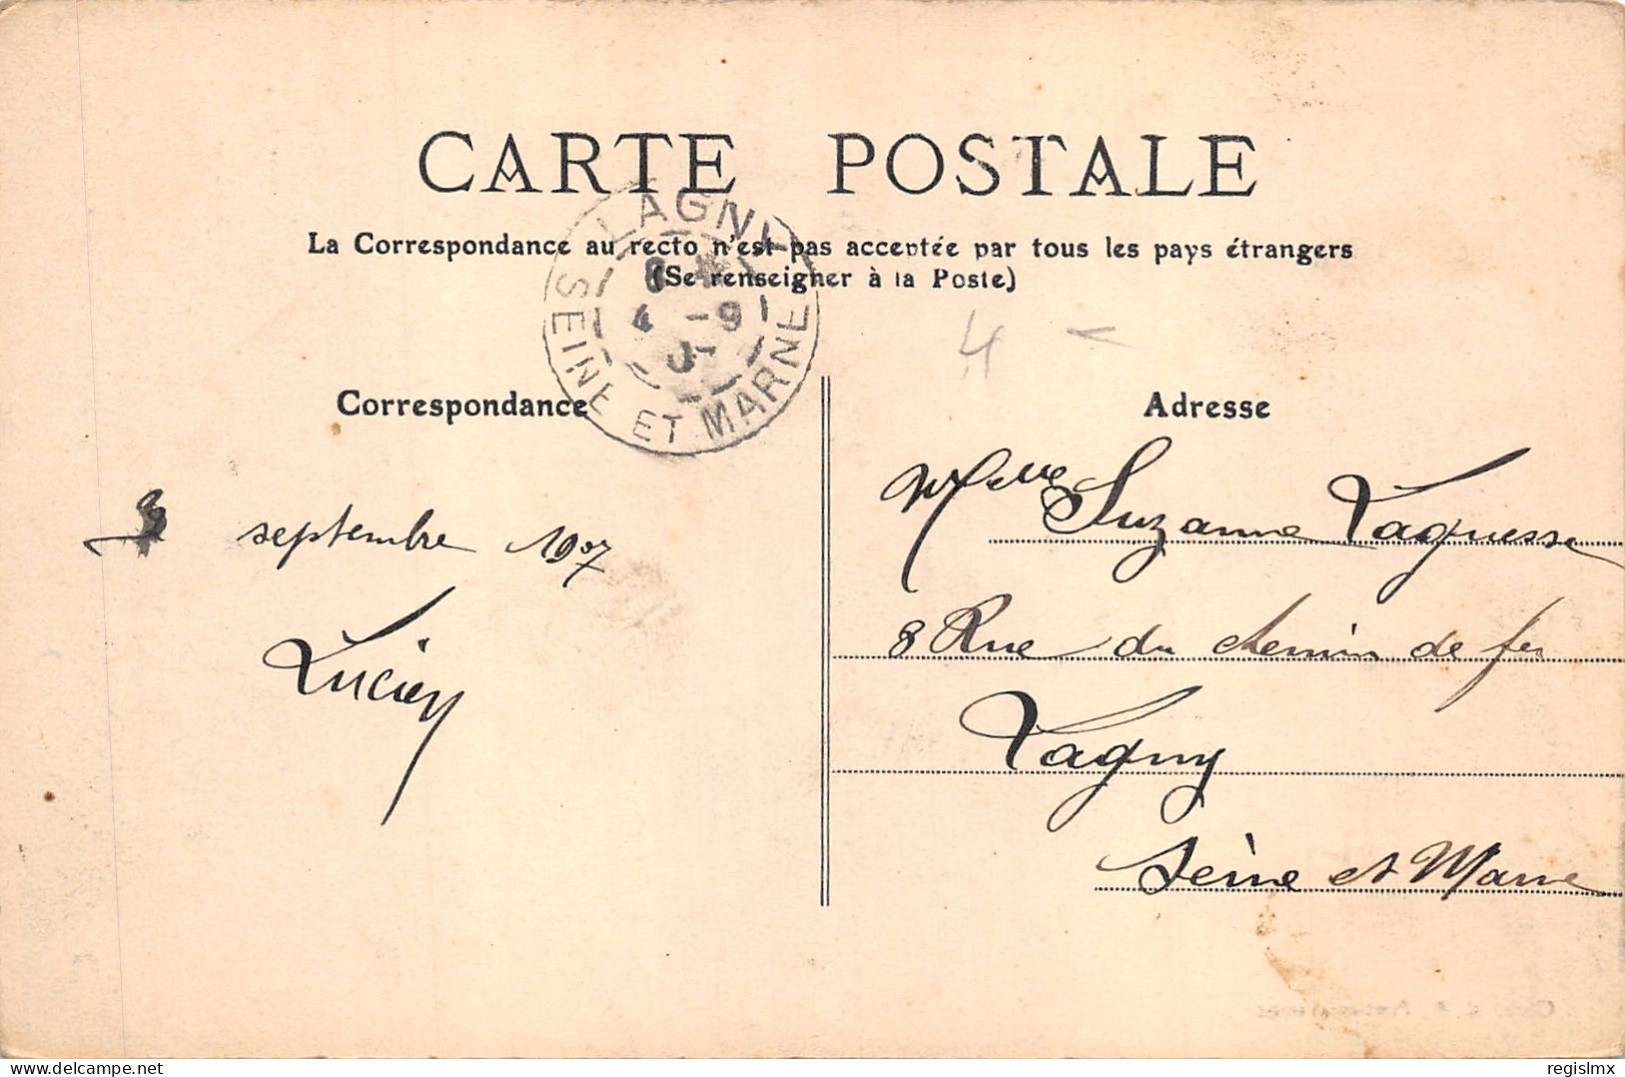 CARTE POSTALE
La Correspondance au recto n'est pas acceptée par tous les pays étrangers
(Se renseigner à la Poste)
LAGNY
4 -9
SEINE ET MARNE
4
Correspondance
3 septembre 1907
Lucien
Adresse
Melle Suzanne Laguesse
8 Rue du chemin de fer
Lagny
Seine et Marne
delcampe.net
regislmx